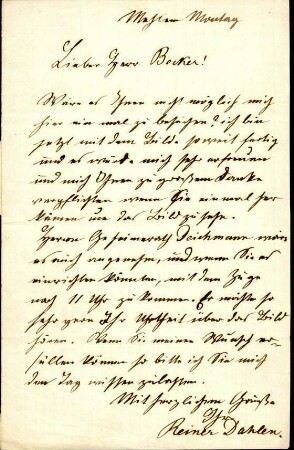 Mehlem Montag
Lieber Herr Becker!
Wäre es Ihnen nicht möglich mich
hier ein mal zu besuchen? ich bin
jetzt mit dem Bilde soweit fertig
und es würde mich sehr erfreuen
und mich Ihnen zu großem Danke
verpflichten wenn Sie ein mal her
kämen um das Bild zu sehn.
Herrn Geheimerath Deichmann wäre
es auch angenehm, und wenn Sie es
einrichten könnten, mit dem Zuge
nach 11 Uhr zu kommen. Es möchte so
sehr gern Ihr Urtheil über das Bild
hören. Wenn Sie meinen Wunsch er-
füllen können so bitte ich Sie mich
den Tag wissen zu lassen.
Mit herzlichem Gruße
Ihr
Reiner Dahlen.